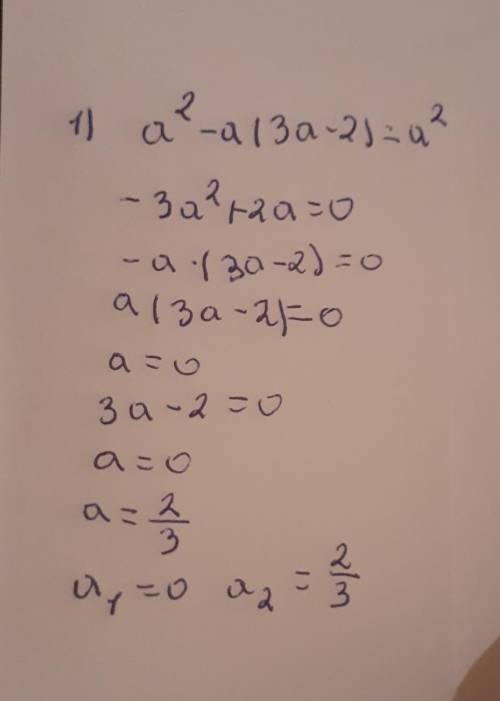 1) a² - a(3a-2) = a²
-3a² + 2a = 0
-a · (3a-2) = 0
a(3a-2) = 0
a = 0
3a - 2 = 0
a = 0
a = 2/3
a₁ = 0 a₂ = 2/3